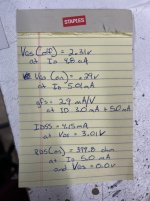 STAPLES
VGS (off) = 2.31V
at ID 4.8 uA
VGS (on) = .29V
at ID 5.01mA
gfs = 2.9 mA/V
at ID 3.0mA + 5.0mA
IDSS = 4.15mA
at VDS = 3.01V
RDS(on) = 399.8 ohm
at ID 5.0mA
and VGS = 0.0v